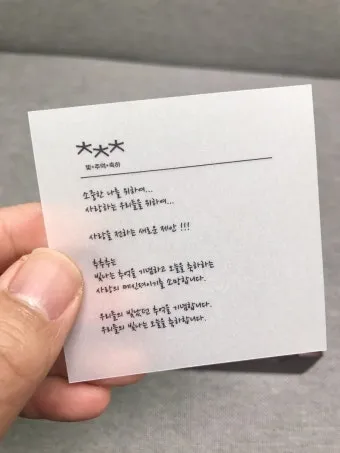 빛+추억+축하
소중한 나를 위하여...
사랑하는 우리들을 위하여...
사랑을 전하는 새로운 제안 !!!
추추추는
빛나는 추억을 기념하고 오늘을 축하하는
사랑의 메신저이기를 소망합니다.
우리들의 빛났던 추억을 기념합니다.
우리들의 빛나는 오늘을 축하합니다.